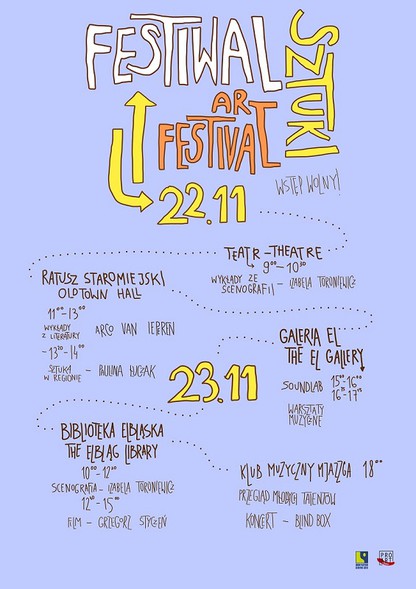 FESTIWAL
SZTUKI
ART
FESTIVAL
WSTĘP WOLNY!
22.11
TEATR - THEATRE
9⁰⁰ - 10³⁰
WYKŁADY ZE SCENOGRAFII - IZABELA TORONIEWICZ
RATUSZ STAROMIEJSKI
OLD TOWN HALL
11⁰⁰ - 13⁰⁰
WYKŁADY Z LITERATURY - ARCO VAN IEPEREN
- 13²⁰ - 14⁰⁰
SZTUKA W REGIONIE - PAULINA ŁUCZAK
GALERIA EL
THE EL GALLERY
SOUNDLAB
WARSZTATY
MUZYCZNE
23.11
BIBLIOTEKA ELBLĄSKA
THE ELBLĄG LIBRARY
10⁰⁰ - 12³⁰
SCENOGRAFIA - IZABELA TORONIEWICZ
FILM - GRZEGORZ STYCZEŃ
KLUB MUZYCZNY MJAZZGA 18⁰⁰
PRZEGLĄD MŁODYCH TALENTÓW
KONCERT - BLIND BOX